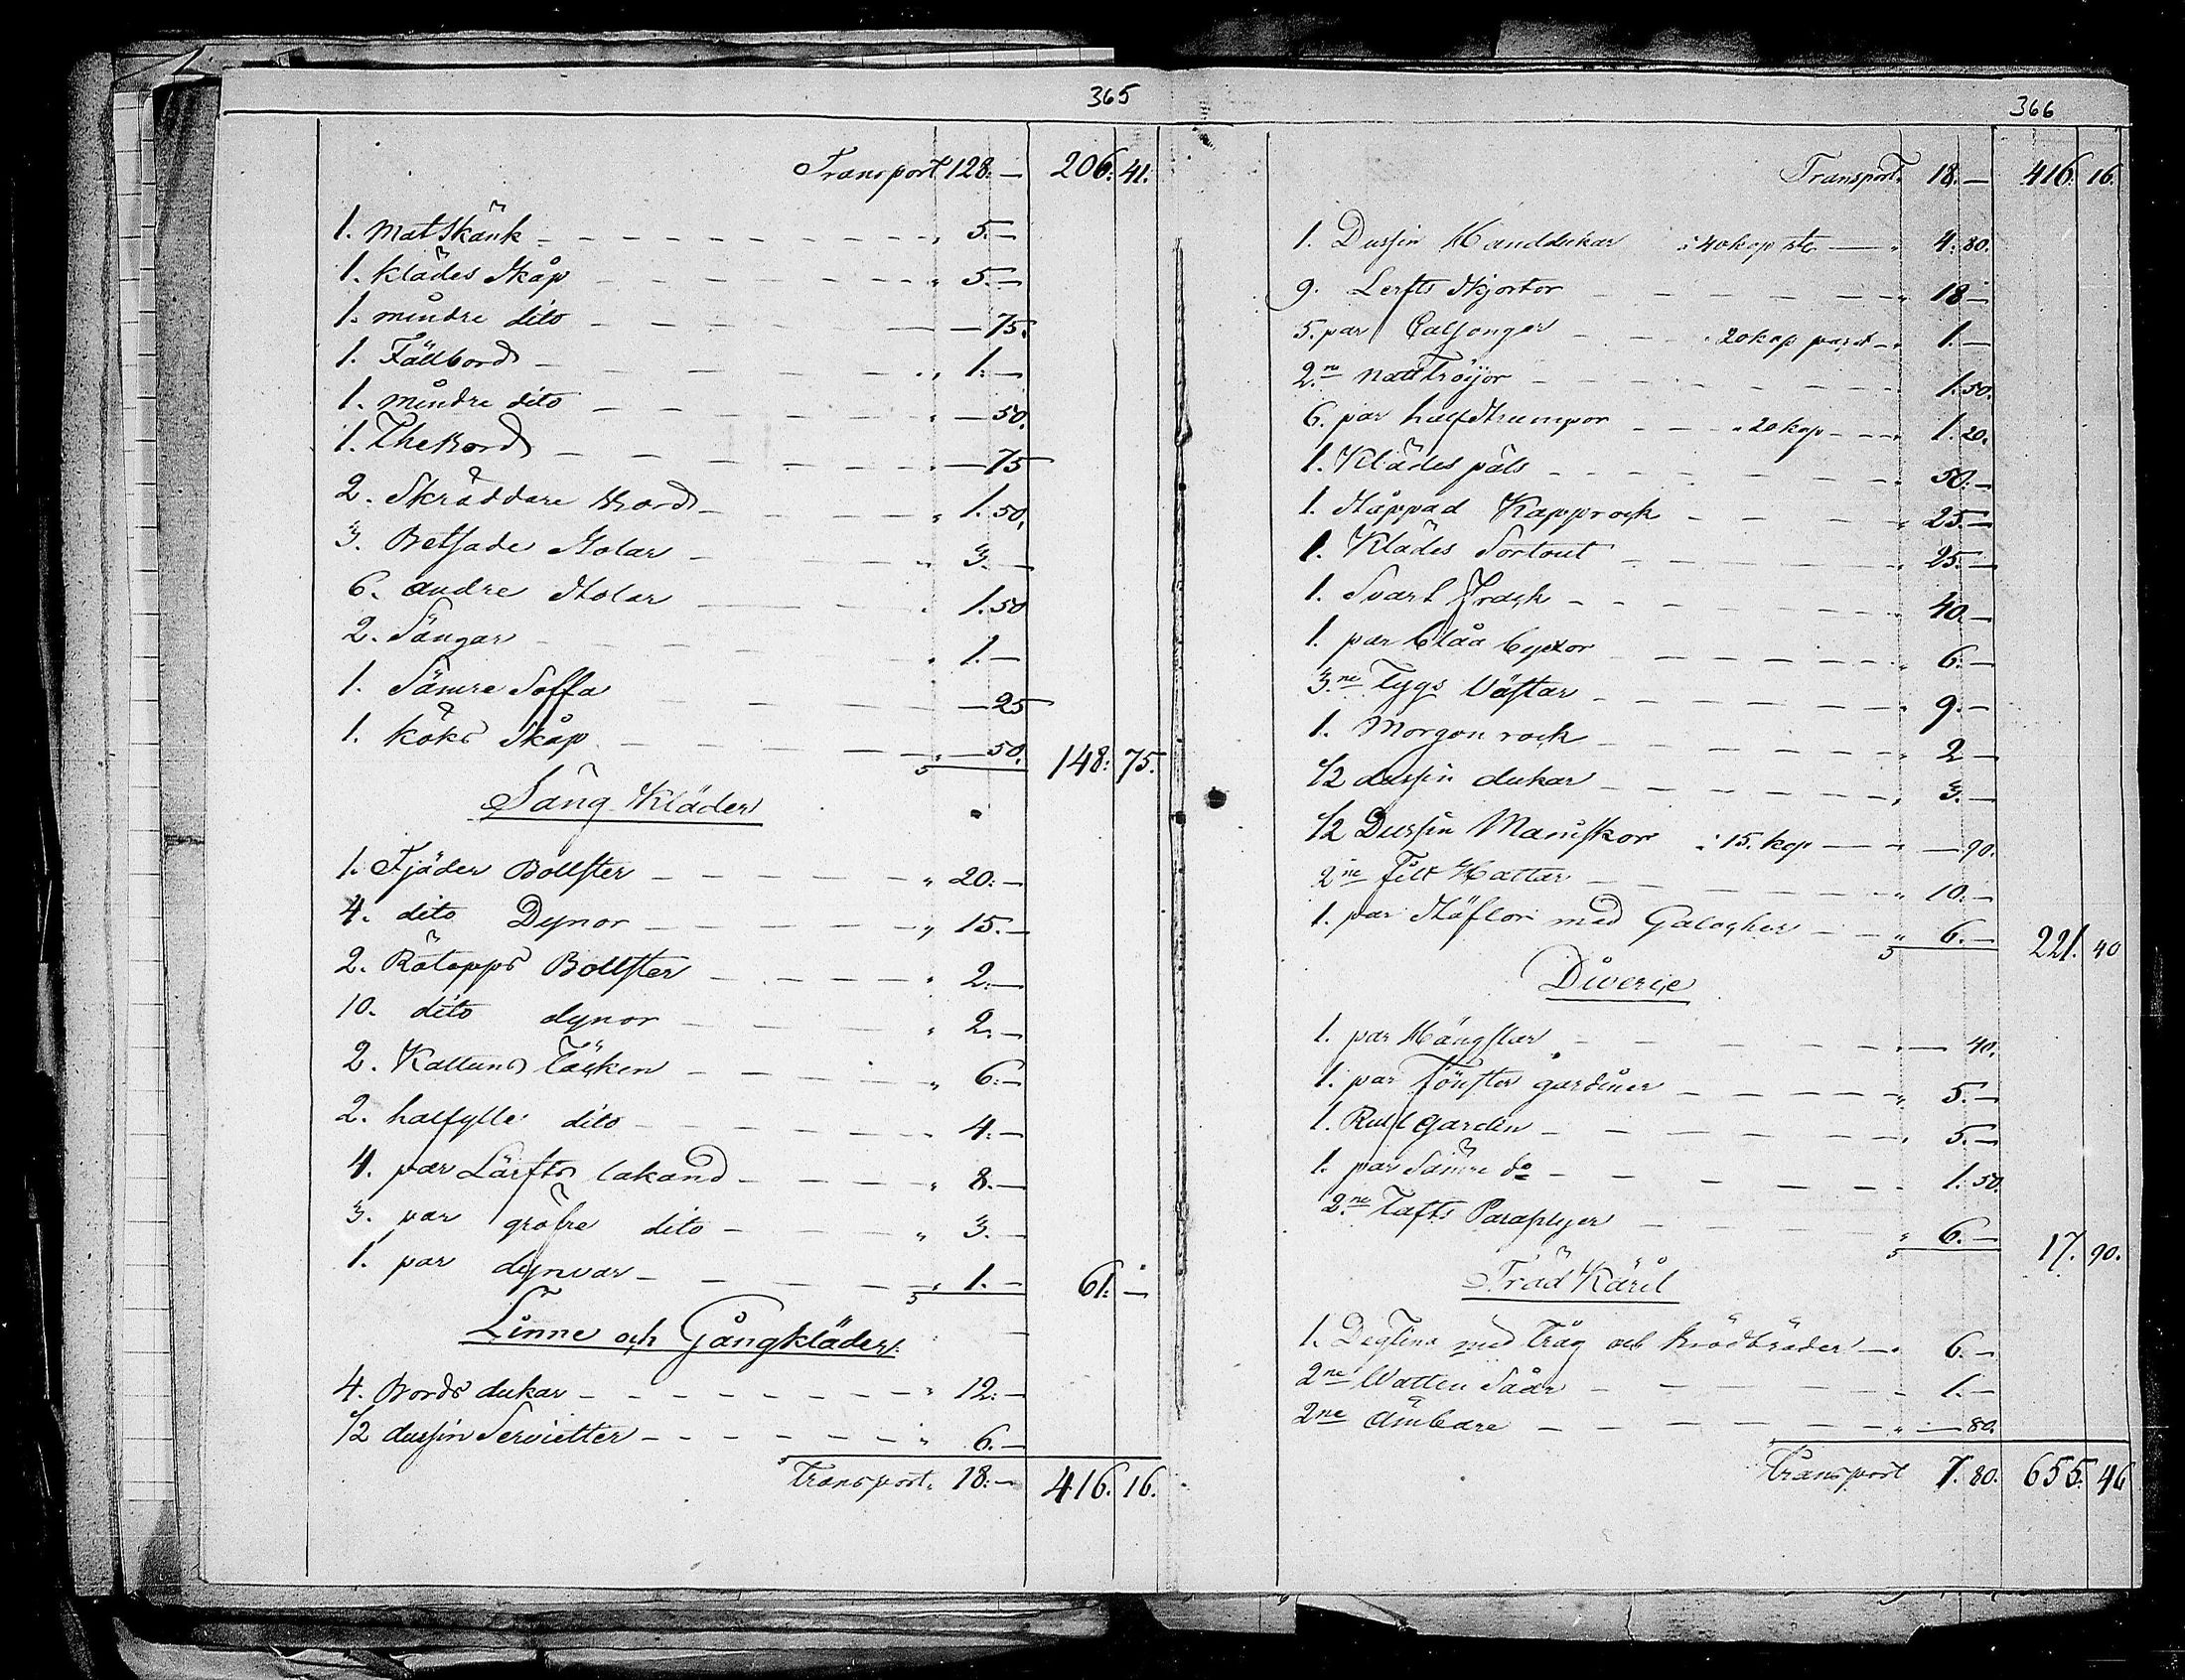 365
Transport 128.— 206. 41.
1. Mat Skänk — " 5.—
1. Klädes Skåp — " 5.—
1. mindre dito — — 75.
1. Fällbord — " 1.—
1. mindre dito — " — 50.
1. The Bord — " — 75
2. Skräddare Bord — " 1. 50.
3. Betsade Stolar — " 3.—
6. andre Stolar — " 1. 50
2. Sängar — " 1.—
1. Sämre Soffa — — 25
1. Köks Skåp — " — 50. 148. 75.
Säng Kläder
1. Fjäder Bollster — " 20.—
4. dito Dynor — " 15.—
2. Rötopps Bollster — " 2.—
10. dito dynor — " 2.—
2. Kattuns Täcken — " 6.—
2. halfylle dito — " 4.—
4. par Lärfts lakand — " 8.—
3. par gröfre dito — " 3.—
1. par dynvar — " 1.— 61.—
Linne och Gångkläder
4. Bords dukar — " 12.—
1/2 dussin Servietter — " 6.—
Transport. 18.— 416. 16.
366
Transport. 18.— 416. 16.
1. Dussin Handdukar à 40 kop st. — " 4. 80.
9. Lerfts Skjortor — " 18 —
5. par Calsonger — " 20 kop paret — " 1.—
2.ne nattröijor — 1. 50.
6. par halfstrumpor — " 20 kop — " 1. 20.
1. Klädes päls — " 50.—
1. Stoppad Kapprock — " 25.—
1. Klädes Sortout — " 25.—
1. Svart Frack — " 40.—
1. par blåa byxor — " 6.—
3.ne Tygs Västar — " 9.—
1. Morgon rock — " 2 —
1/2 dussin dukar — " 3.—
1/2 Dussin Maniskor à 15. kop — " — 90.
2ne Filt Hattar — " 10.—
1. par Stöflor med Galoscher — " 6.— 221. 40
Diverse
1. par Hängslar — " — 40.
1. par Fönster gardiner — " 5.—
1. Rull gardin — " 5.—
1. par Sämre do — 1. 50.
2.ne Tafts Paraplyer — " 6.— 17. 90.
Träd Käril
1. Degtina med Tråg och Brödbräder — " 6.—
2ne Watten Såar — 1.—
2ne Ämbare — " — 80.
Transport 7. 80. 655. 46